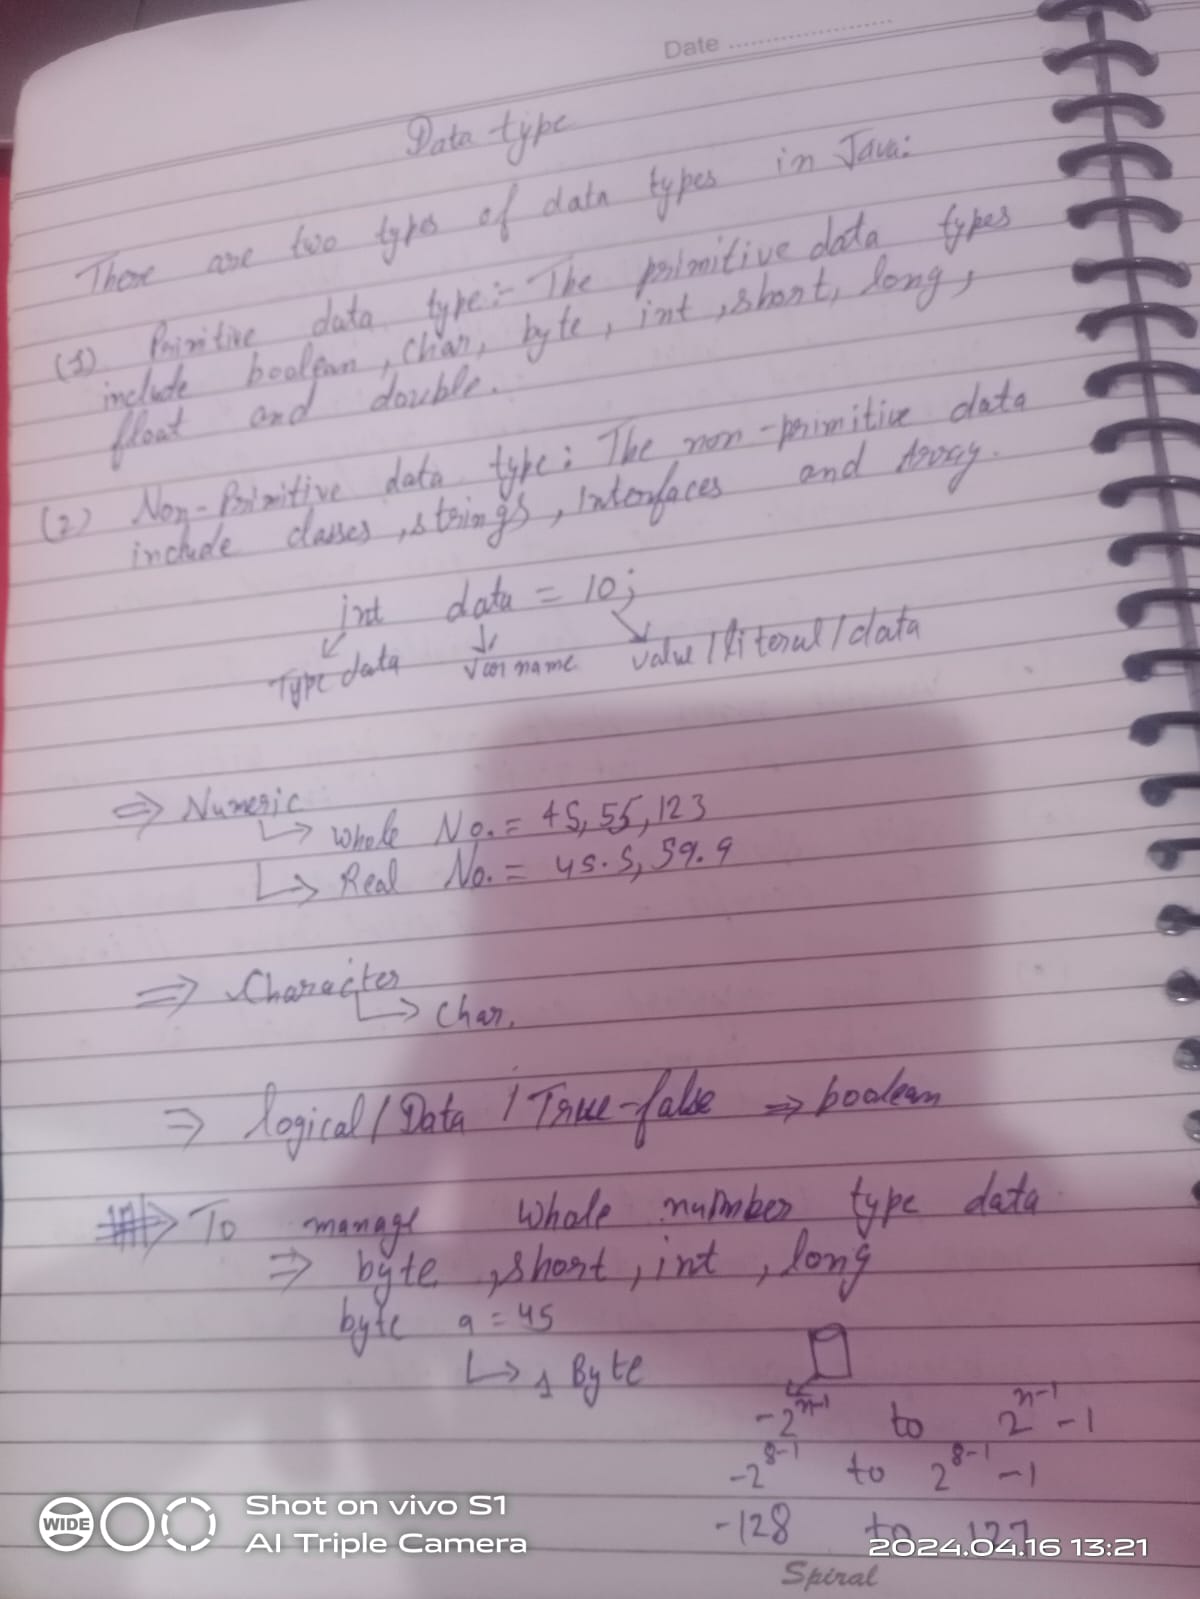 Date
Data type
There are two types of data types in Java:
(1) Primitive data type:- The primitive data types
include boolean, char, byte, int, short, long,
float and double.
(2) Non-Primitive data type: The non-primitive data
include classes, strings, Interfaces and Array.
int data = 10;
Type data var name value/literal/data
⇒ Numeric
↳ Whole No. = 45, 55, 123
↳ Real No. = 45.5, 59.9
⇒ Character
↳ Char.
⇒ logical/Data / True-false ⇒ boolean
⇒ To manage Whole number type data
⇒ byte, short, int, long
byte a = 45
↳ 1 Byte
-2^(n-1) to 2^(n-1) -1
-2^(8-1) to 2^(8-1) -1
-128 to 127
WIDE
Shot on vivo S1
AI Triple Camera
2024.04.16 13:21
Spiral